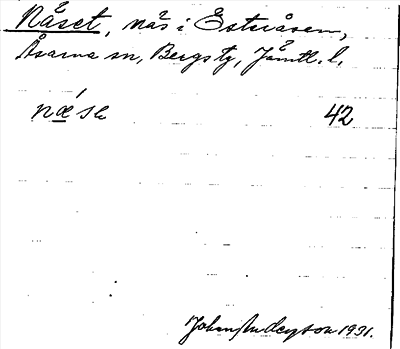 Näset, näs i Österåsen,
Åsarna sn, Bergs tg, Jämtl. l.
næ´sɛ 42
Johan Andersson 1931.